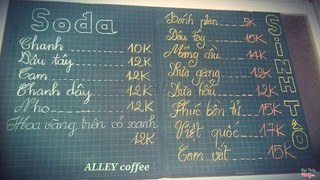 Soda
Chanh 10K
Dâu tây 12K
Cam 12K
Chanh dây 12K
Nho 12K
Hoa vàng trên cỏ xanh 12K
ALLEY coffee
SINH TỐ
Bánh plan 5K
Dâu tây 15K
Mãng cầu 14K
Dưa gang 12K
Dưa hấu 12K
Phúc bồn tử 15K
Việt quốc 17K
Cam vắt 15K